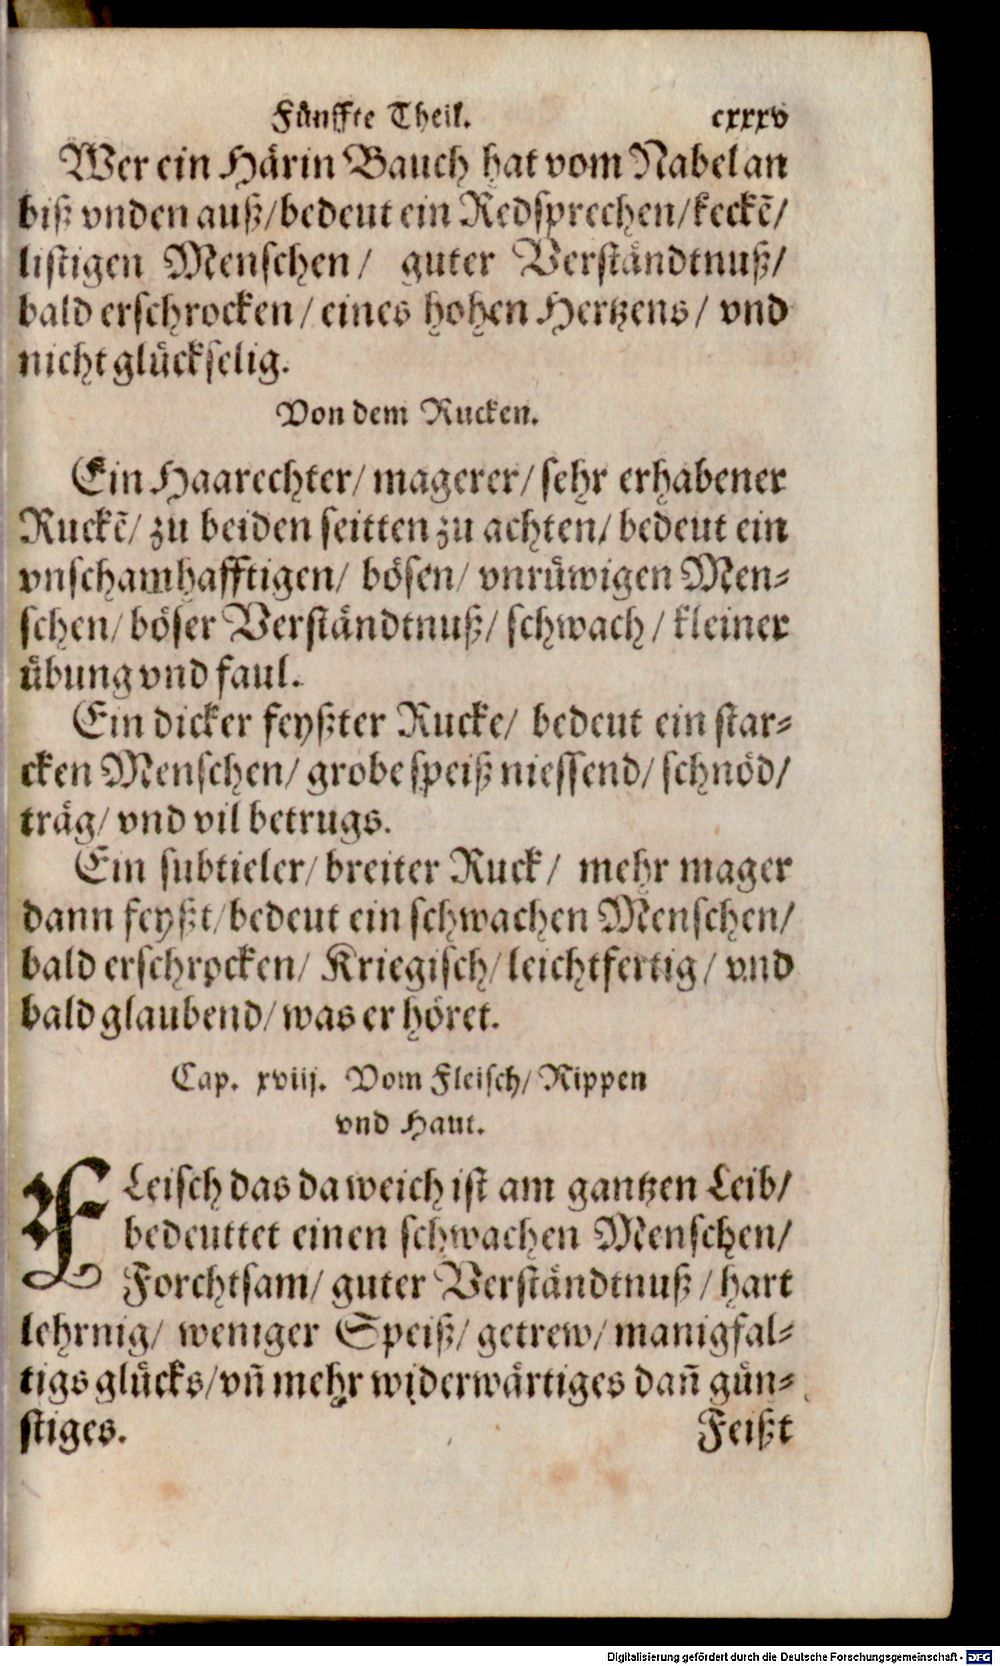 Fünffte Theil. cxxxv
Wer ein Härin Bauch hat vom Nabel an
biß vnden auß/bedeut ein Redsprechen/keckẽ/
listigen Menschen/ guter Verständtnuß/
bald erschrocken/eines hohen Hertzens/ vnd
nicht glückselig.
Von dem Rucken.
Ein Haarechter/ magerer/ sehr erhabener
Ruckẽ/ zu beiden seitten zu achten/ bedeut ein
vnschamhafftigen/ bösen/ vnrüwigen Men-
schen/ böser Verständtnuß/ schwach/ kleiner
übung vnd faul.
Ein dicker feyßter Rucke/ bedeut ein star-
cken Menschen/ grobe speiß niessend/ schnöd/
träg/ vnd vil betrugs.
Ein subtieler/ breiter Ruck/ mehr mager
dann feyßt/bedeut ein schwachen Menschen/
bald erschrocken/ Kriegisch/ leichtfertig/ vnd
bald glaubend/ was er höret.
Cap. xviij. Vom Fleisch/ Rippen
vnd Haut.
FLeisch das da weich ist am gantzen Leib/
bedeuttet einen schwachen Menschen/
Forchtsam/ guter Verständtnuß/ hart
lehrnig/ weniger Speiß/ getrew/ manigfal-
tigs glücks/ vñ mehr widerwärtiges dañ gün-
stiges. Feißt
Digitalisierung gefördert durch die Deutsche Forschungsgemeinschaft - DFG